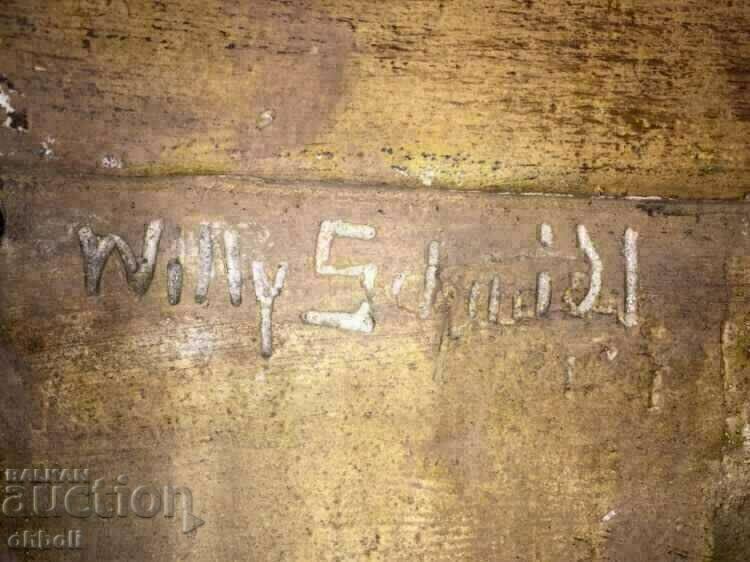 Willy Schmidt
BALKAN
auction
ohboli